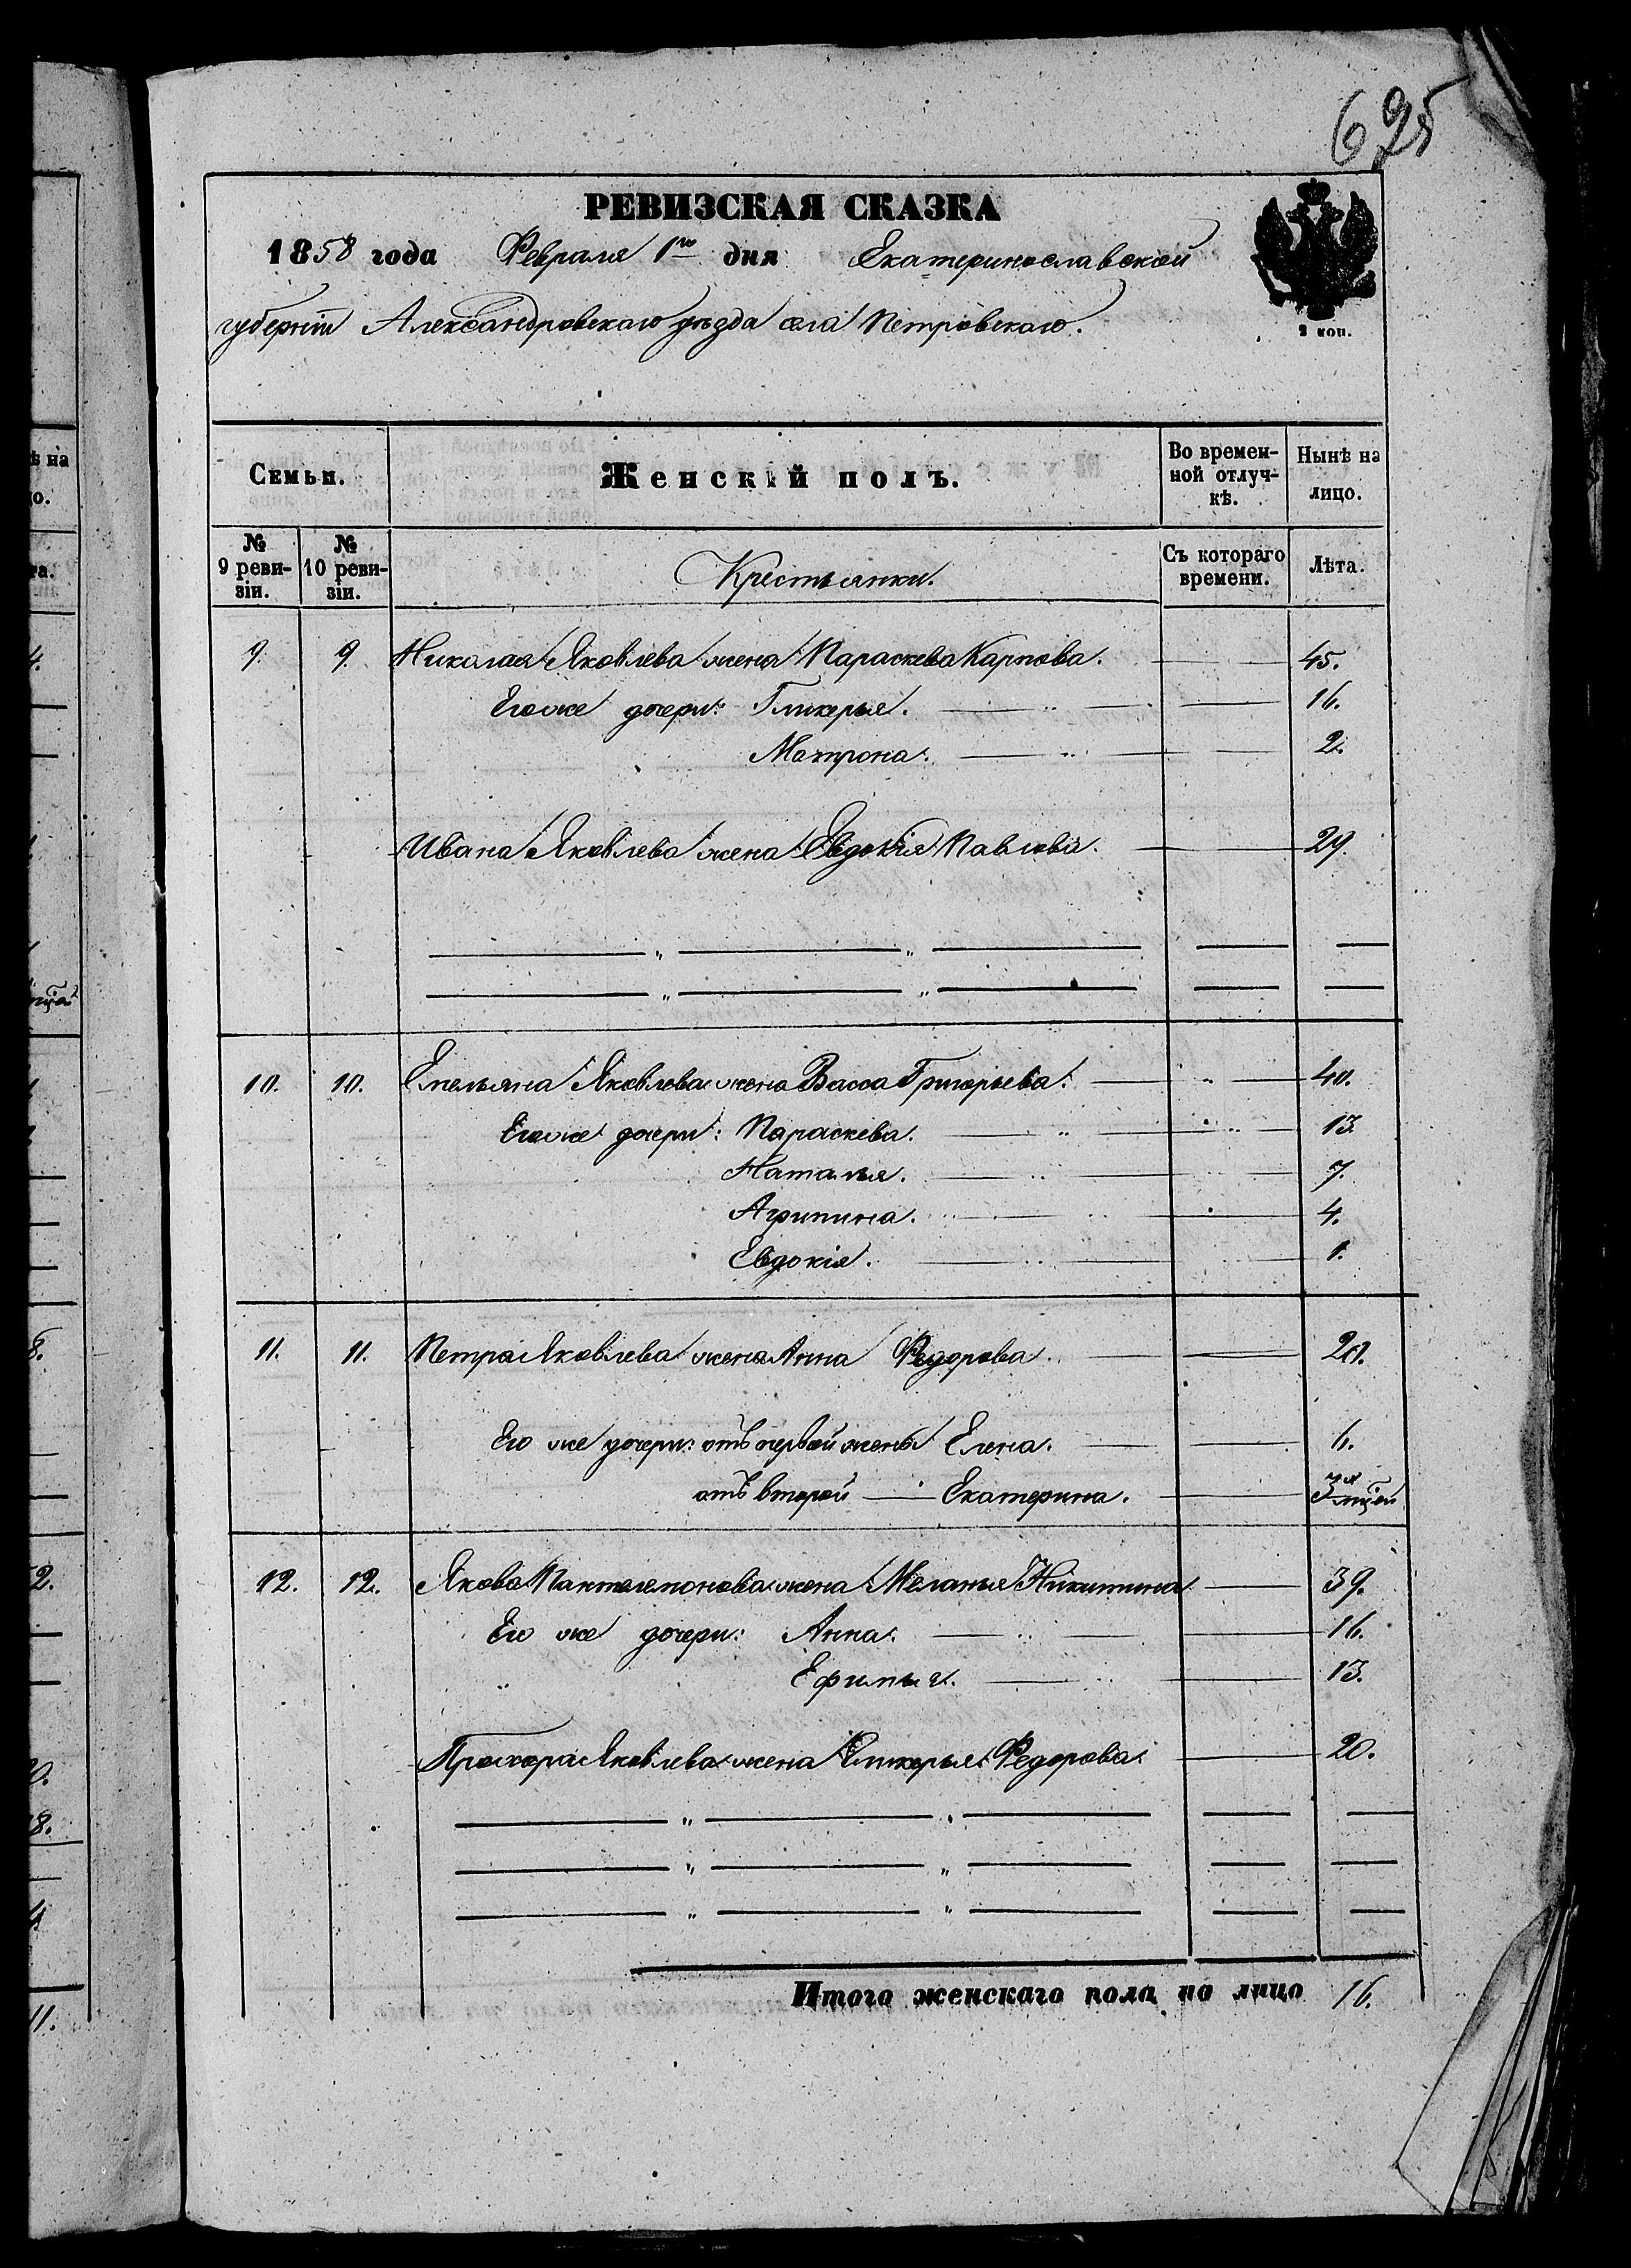 695
РЕВИЗСКАЯ СКАЗКА
1858 года Февраля 1го дня Екатеринославской
губерніи Александровскаго уѣзда села Петровскаго.
2 коп.
Семьи.
Женскій полъ.
Во времен-
ной отлуч-
кѣ.
Нынѣ на
лицо.
№
9 реви-
зіи.
№
10 реви-
зіи.
Крестьянки.
Съ котораго
времени.
Лѣта.
9. 9. Николая Яковлева жена Параскева Карпова. 45.
Его же дочери: Гликерья. 16.
Матрона. 2.
Ивана Яковлева жена Евдокія Павлова. 29.
10. 10. Емельяна Яковлева жена Васса Григорьева. 40.
Его же дочери: Параскева. 13.
Наталья. 7.
Агрипина. 4.
Евдокія. 1.
11. 11. Петра Яковлева жена Анна Федорова. 20.
Его же дочери: отъ первой жены Елена. 6.
отъ второй Екатерина. 3
12. 12. Якова Пантелемонова жена Меланья Никитина 39.
Его же дочери: Анна. 16.
Ефимья. 13.
Прохора Яковлева жена Гликерья Федорова. 20.
Итого женскаго пола на лицо 16.
ѣ на
о.
та.
4.
8.
2.
0.
8.
4.
11.